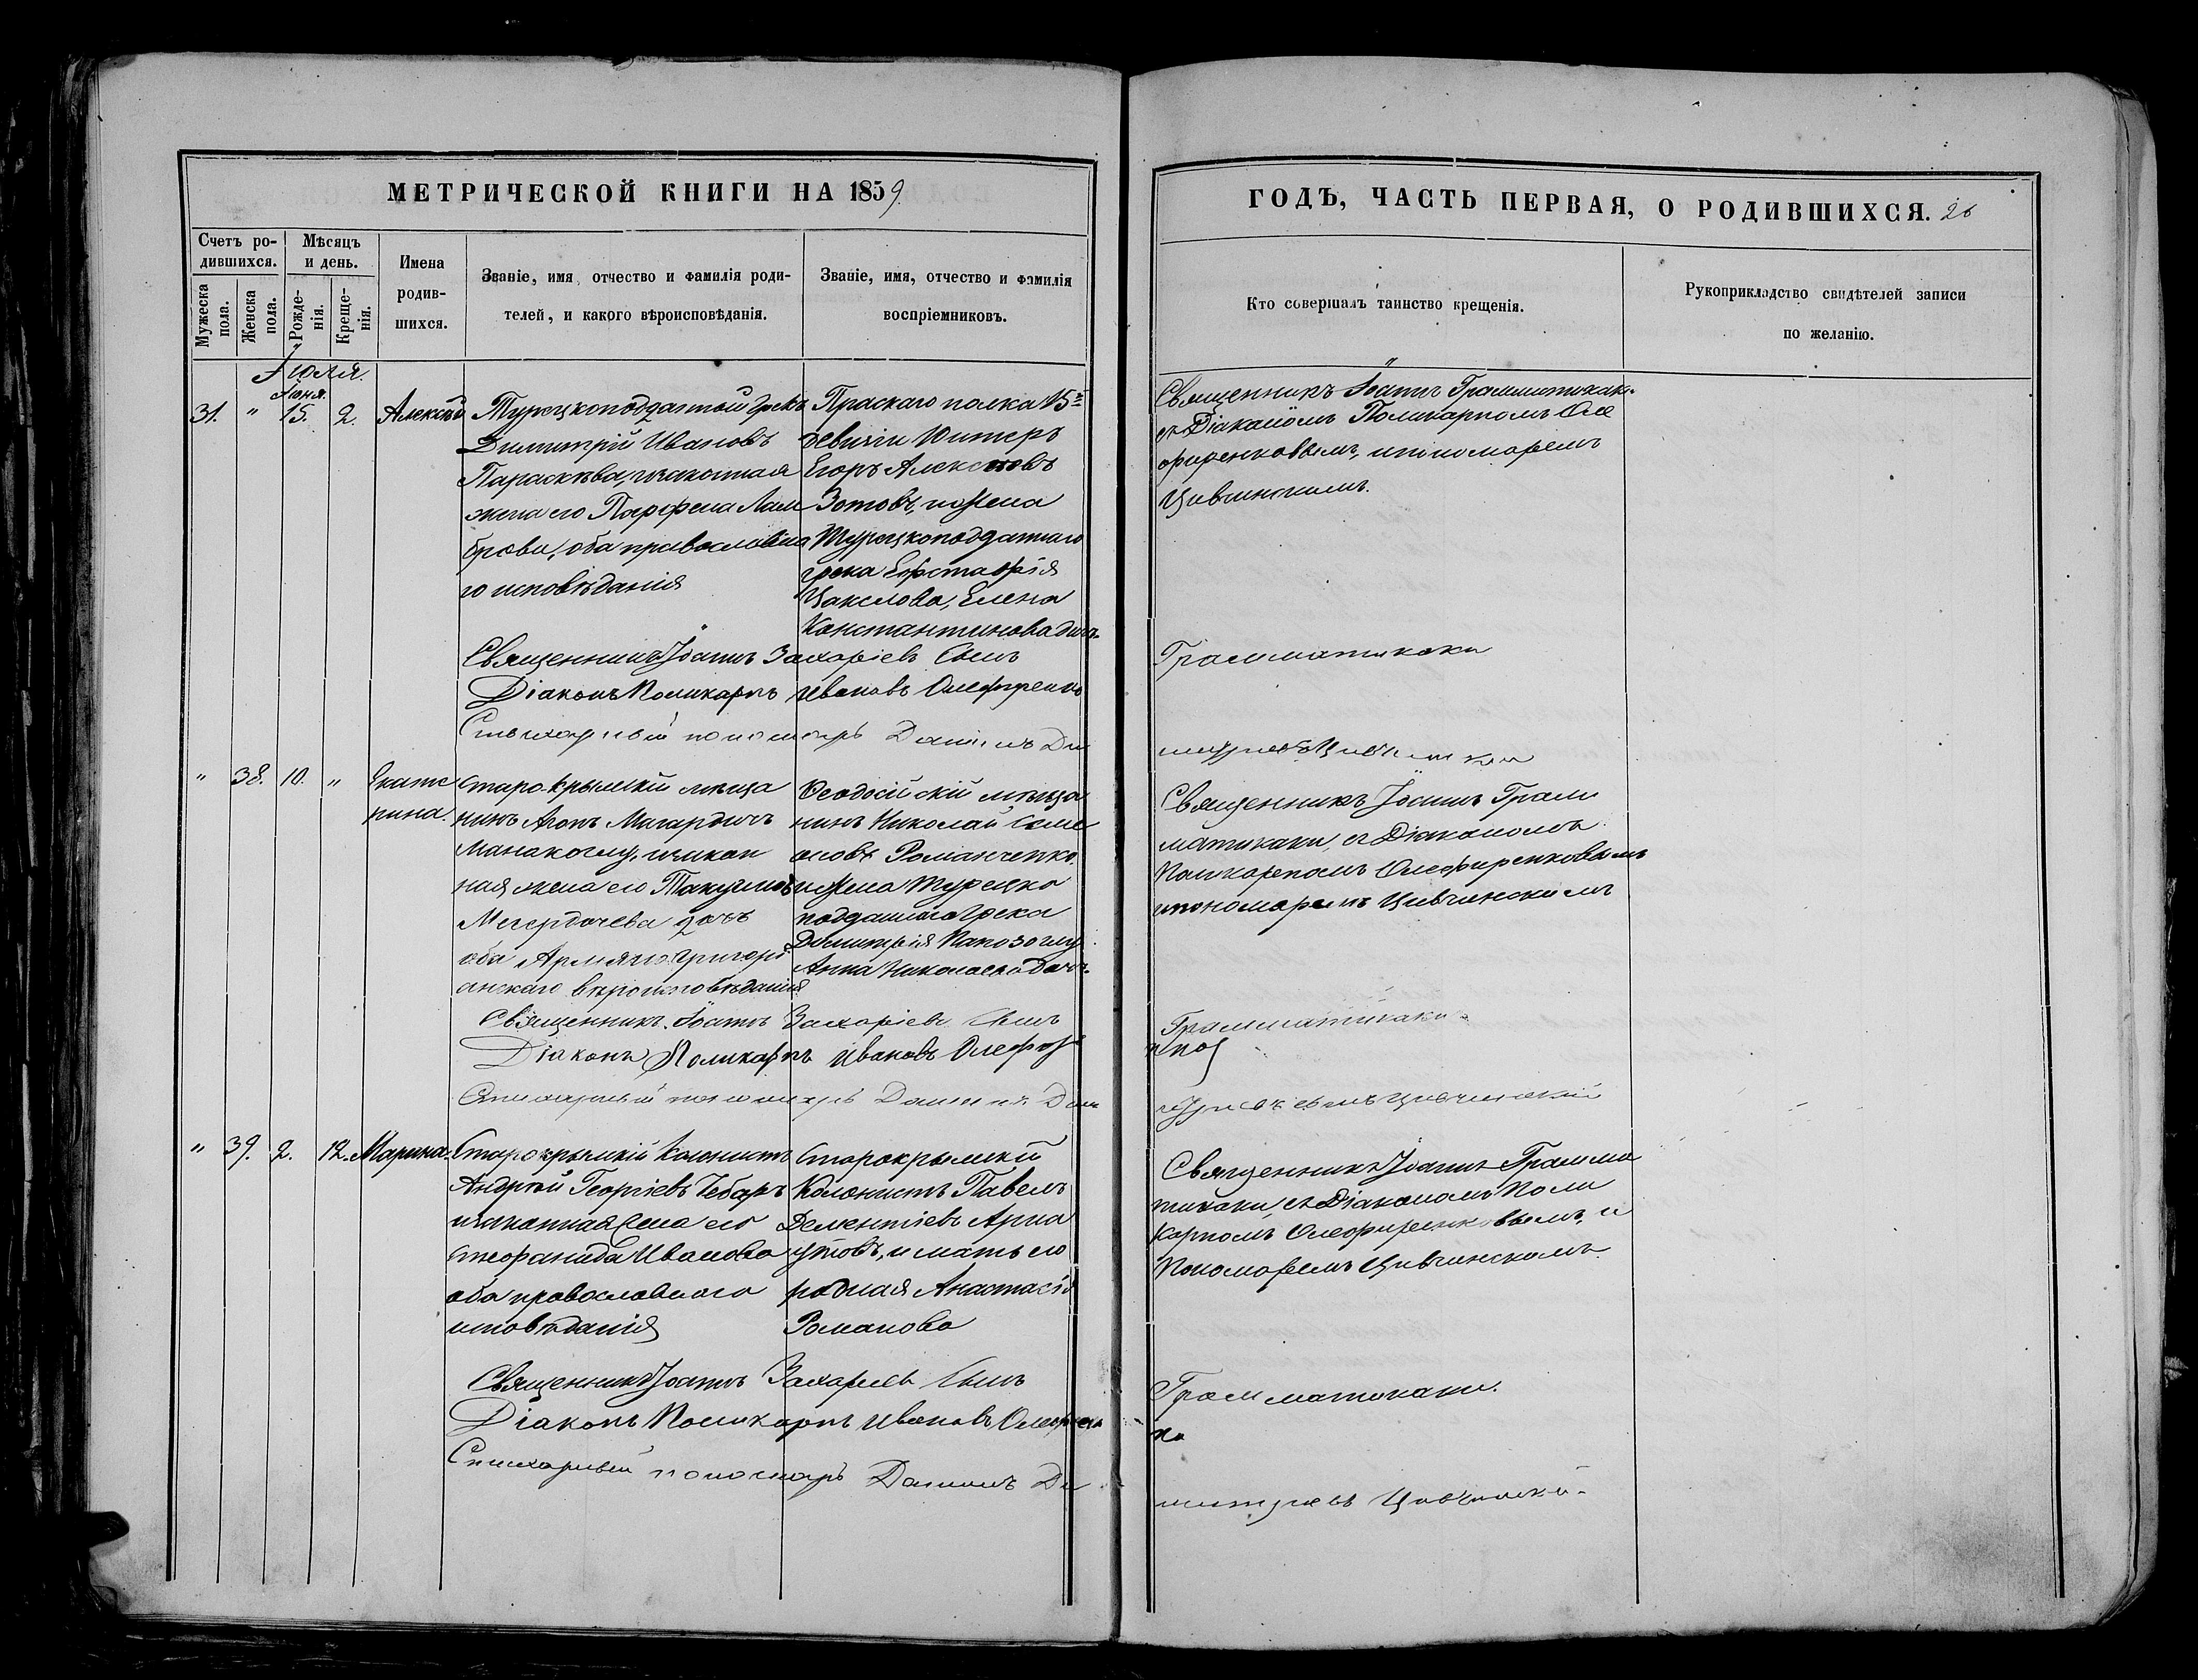 МЕТРИЧЕСКОЙ КНИГИ НА 1859
ГОДЪ, ЧАСТЬ ПЕРВАЯ, О РОДИВШИХСЯ. 26
Счетъ ро-
дившихся.
Мужеска
пола.
Женска
пола.
Мѣсяцъ
и день.
Рожде-
нія.
Креще-
нія.
Имена
родив-
шихся.
Званіе, имя, отчество и фамилія роди-
телей, и какого вѣроисповѣданія.
Званіе, имя, отчество и фамилія
воспріемниковъ.
Кто совершалъ таинство крещенія.
Рукоприкладство свидѣтелей записи
по желанію.
Іюля.
Іюня.
31. " 15. 2.
Турецкоподданный грекъ
Димитрій Ивановъ
жена его
оба православна
го исповѣданія
полка 15
Юнкеръ
Егоръ
Зотовъ, и жена
Турецкоподданнаго
грека Евстафія
Елена
Константинова дочь.
Священникъ Іоаннъ Грамматикаки
съ Діакономъ Поликарпомъ Оле
фиренковымъ, и пономаремъ
Цивчинскимъ.
Священникъ Іоаннъ Захаріевъ Сынъ
Грамматикаки
Діаконъ Поликарпъ Ивановъ Олефиренко
Стихарный пономарь Даніилъ Ди
" 38. 10. "
Екате
рина.
Старокрымскій мѣща
нинъ
законная
жена его
дочь
оба Армяно григорі
анскаго вѣроисповѣданія
Ѳеодосійскій мѣща
нинъ Николай Семе
оновъ Романченко.
и жена Турецко
подданнаго Грека
Димитрія
Анна Николаева дочь.
Священникъ Іоаннъ Грам
матикаки, съ Діакономъ
Поликарпомъ Олефиренковымъ
и пономаремъ Цивчинскимъ
Священникъ Іоаннъ Захаріевъ Сынъ
Грамматикаки
Діаконъ Поликарпъ Ивановъ
Стихарный пономарь Даніилъ
" 39. 2. 12. Марина.
Старокрымскій Колонистъ
Андрей Георгіевъ Чебаръ
и законная жена его
Стефанида Иванова
оба православнаго
исповѣданія
Старокрымскій
Колонистъ Павелъ
Дементіевъ Арна
утовъ, и мать его
родная Анастасія
Романова
Священникъ Іоаннъ Грамма
тикаки, съ Діакономъ Поли
карпомъ Олефиренковымъ, и
Пономаремъ Цивчинскимъ
Священникъ Іоаннъ Захаріевъ Сынъ
Грамматикаки.
Діаконъ Поликарпъ Ивановъ Олефирен
ко
Стихарный пономарь Даніилъ Ди